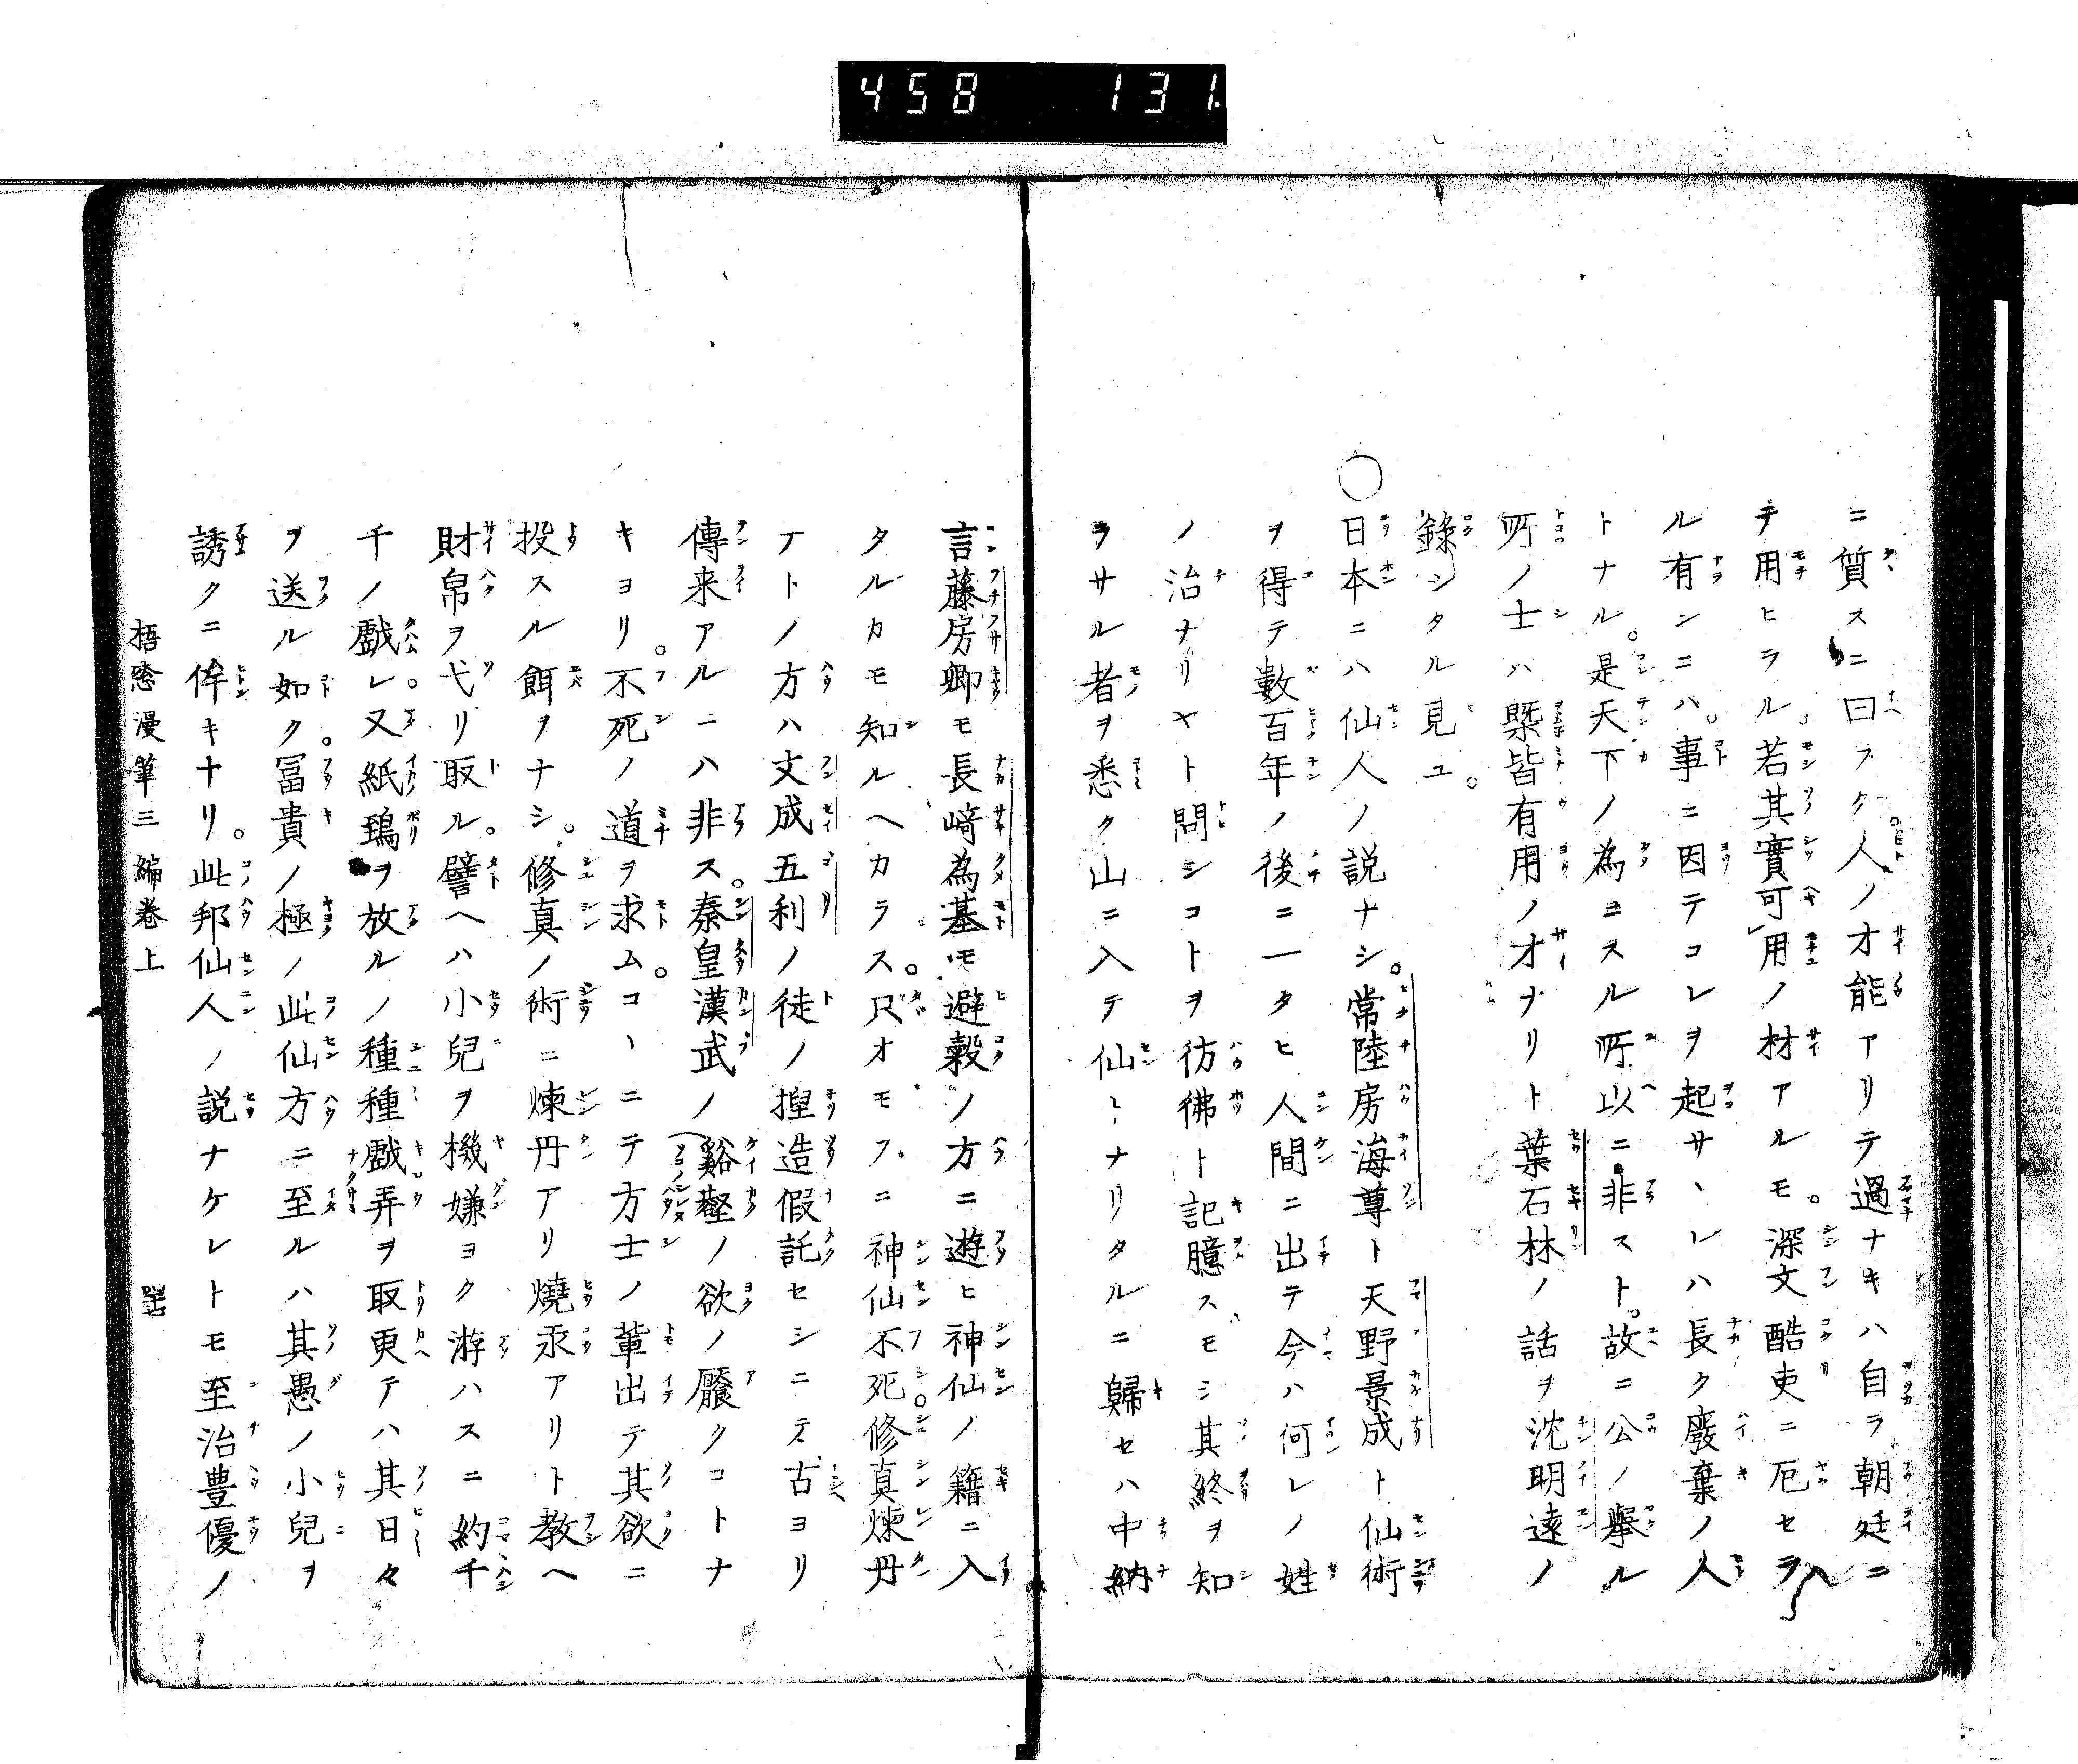 458 131.
ニ質スニ曰フク人ノ才能アリテ過ナキハ自ラ朝廷ニ
テ用ヒラル若其實可用ノ材アルモ。深文酷吏ニ厄セラ
ル有ンニハ。事ニ因テコレヲ起サヽレハ長ク廢棄ノ人
トナル。是天下ノ為ニスル所以ニ非スト。故ニ公ノ擧ル
所ノ士ハ槩皆有用ノ才ナリト葉石林ノ話ヲ沈明遠ノ
錄シタル見ユ。
○日本ニハ仙人ノ説ナシ。常陸房海尊ト天野景成ト仙術
ヲ得テ數百年ノ後ニ一タヒ人間ニ出テ今ハ何レノ姓
ノ治ナリヤト問シコトヲ彷彿ト記臆スモシ其終ヲ知
ラサル者ヲ悉ク山ニ入テ仙トナリタルニ歸セハ中納
言藤房卿モ長﨑為基モ避穀ノ方ニ遊ヒ神仙ノ籍ニ入
タルカモ知ルヘカラス。只オモフニ神仙不死。修真煉丹
ナトノ方ハ文成五利ノ徒ノ揑造假託セシニテ古ヨリ
傳来アルニハ非ス。秦皇漢武ノ谿壑ノ欲ノ饜クコトナ
キヨリ。不死ノ道ヲ求ム。コヽニテ方士ノ輩出テ其欲ニ
投スル餌ヲナシ。修真ノ術ニ煉丹アリ燒汞アリト教ヘ
財帛ヲ弋リ取ル。譬ヘハ小兒ヲ機嫌ヨク游ハスニ約千
千ノ戲レ。又紙鵄ヲ放ルノ種種戲弄ヲ取更テハ其日々
ヲ送ル如ク。冨貴ノ極ノ此仙方ニ至ルハ其愚ノ小兒ヲ
誘クニ侔キナリ。此邦仙人ノ説ナケレトモ至治豊優ノ
梧窓漫筆三編卷上